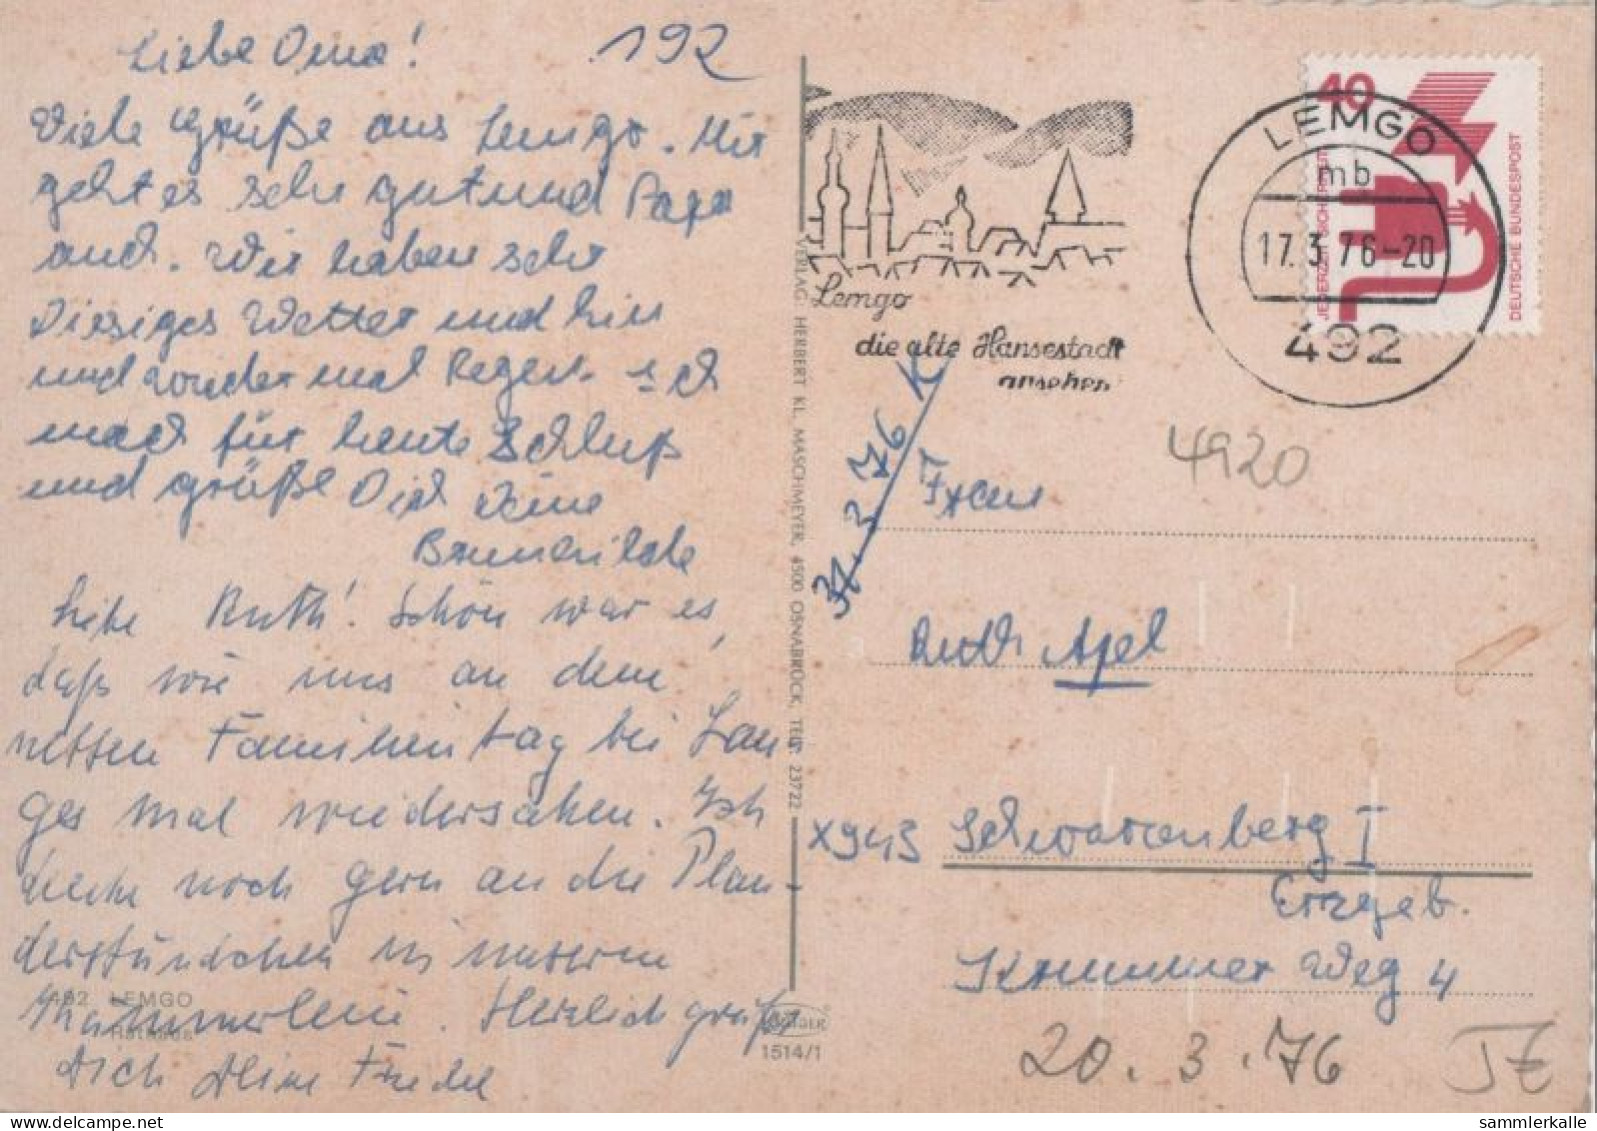 Liebe Oma!
192
Viele Grüße aus Lemgo. Mir
geht es sehr gut und Papa
auch. Wir haben sehr
diesiges Wetter und hin
und wieder mal Regen. Ich
mach für heute Schluß
und grüße Dich Deine
Brunhilde
Liebe Ruth! Schön war es,
daß wir uns an dem
netten Familientag bei Lan-
ges mal wiedersahen. Ich
denke noch gern an die Plau-
derstündchen in unserem
Kämmerlein. Herzlich grüßt
Dich Deine Friedel
492 LEMGO
Rathaus
VERLAG HERBERT KL. MASCHMEYER, 4500 OSNABRÜCK, TEL. 23722
KRÜGER
1514/1
Lemgo
die alte Hansestadt
ansehen
LEMGO
mb
17.3.76-20
492
40
JEDERZEIT SICHERHEIT
DEUTSCHE BUNDESPOST
4920
31.3.76 K
Frau
Ruth Apel
X943 Schwarzenberg I
Erzgeb.
Krummer Weg 4
20.3.76
sammlerkalle